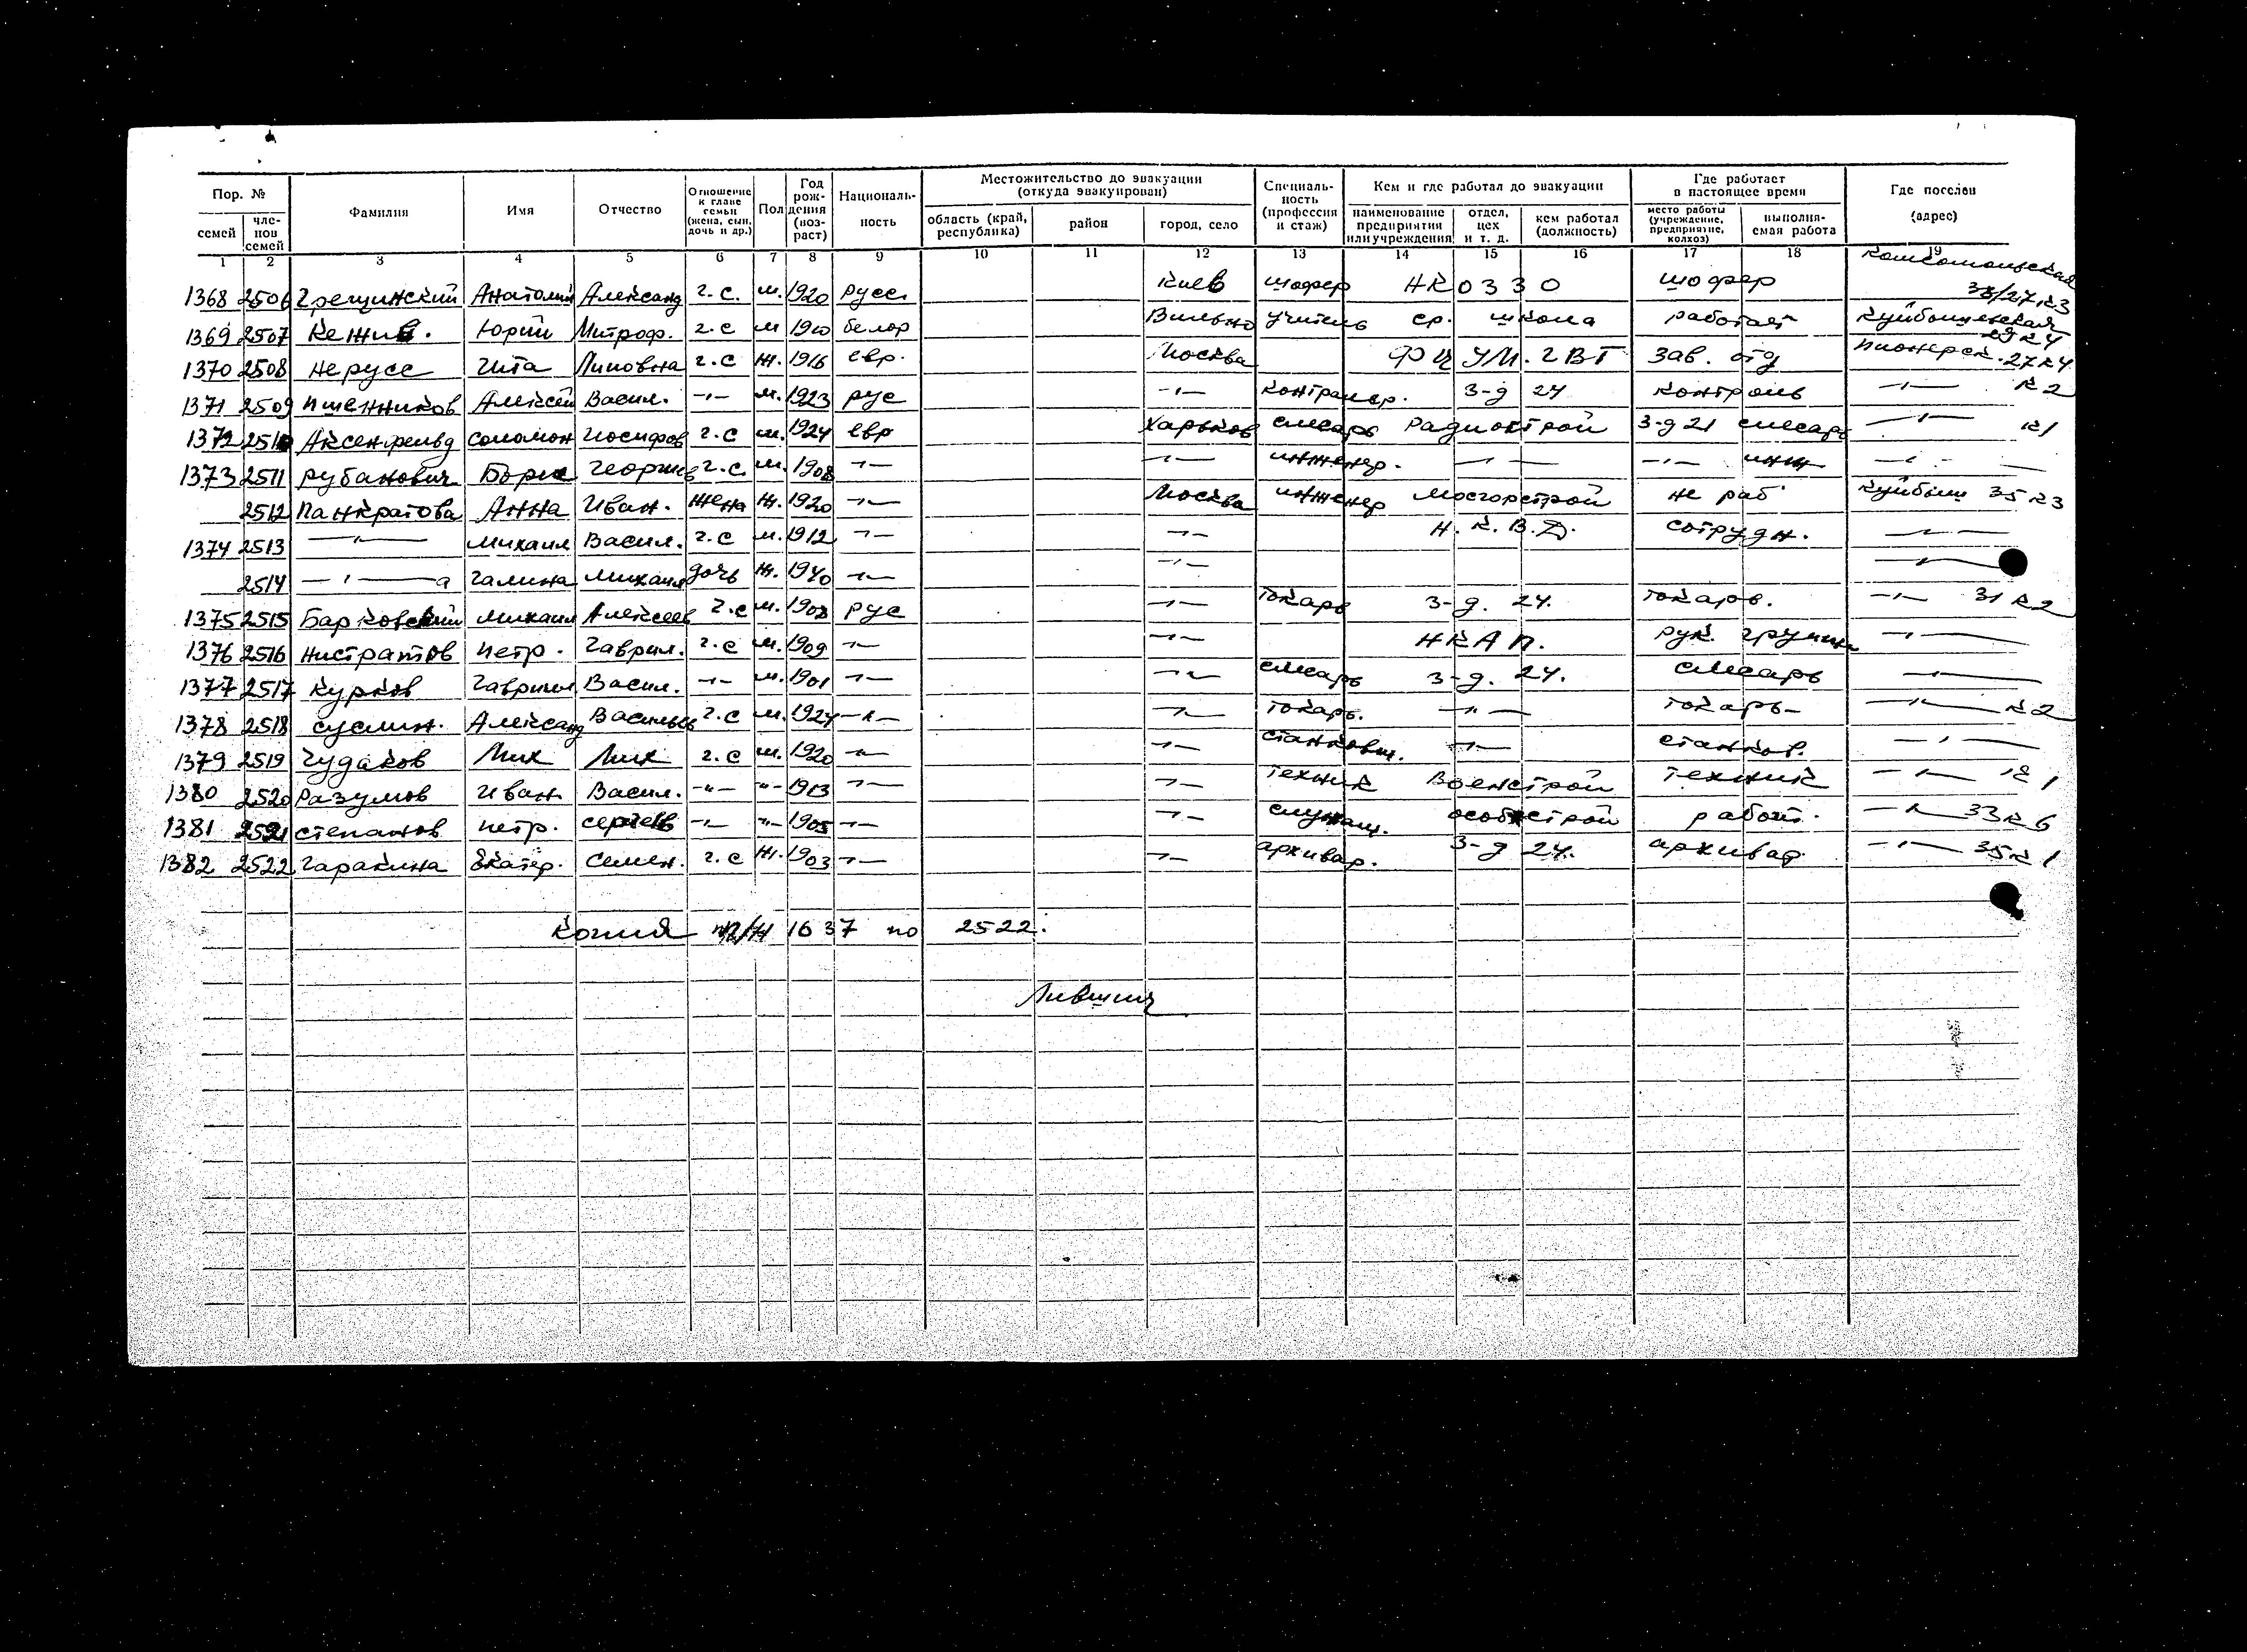 Пор. № Фамилия Имя Отчество Отношение к главе семьи (жена, сын, дочь и др.) Пол Год рождения (возраст) Национальность Местожительство до эвакуации (откуда эвакуирован) Специальность (профессия и стаж) Кем и где работал до эвакуации Где работает в настоящее время Где поселен (адрес)
семей членов семей область (край, республика) район город, село наименование предприятия или учреждения отдел, цех и т. д. кем работал (должность) место работы (учреждение, предприятие, колхоз) выполняемая работа
1 2 3 4 5 6 7 8 9 10 11 12 13 14 15 16 17 18 19
1368 2506 Грещинский Анатолий Александ г.с. м. 1920 русс. Киев шофер НК 0330 шофер Комсомольская 38/27 к3
1369 2507 Кежив. Юрий Митроф. г.с м 1910 белор Вильно учитель ср. школа работает Куйбышевская 29 к4
1370 2508 Нерусс Гита Липовна г.с ж. 1916 евр. Москва УМ. ГВТ зав. отд Пионерск. 27 к4
1371 2509 Пшенников Алексей Васил. -"- м. 1923 рус -"- контралер. з-д 24 контроль -"- к2
1372 2510 Аксенфельд Соломон Иосифов г.с м. 1924 евр Харьков слесарь Радиострой з-д 21 слесарь -"- к1
1373 2511 Рубанович Борис Георгиев г.с. м. 1908 -"- -"- инженер. -"- -"- инж -"-
2512 Панкратова Анна Иван. жена ж. 1920 -"- Москва инженер Мосгорстрой не раб Куйбыш 35 к3
1374 2513 -"- Михаил Васил. г.с м. 1912 -"- -"- Н.К.В.Д. сотрудн. -"-
2514 -"-а Галина Михаил дочь ж. 1940 -"- -"- -"-
1375 2515 Барковский Михаил Алексеев г.с м. 1908 рус -"- токарь з-д. 24. токарь. -"- 31 к2
1376 2516 Нистратов Петр. Гаврил. г.с м. 1909 -"- -"- НКАП. рук. группы -"-
1377 2517 Курков Гавриил Васил. -"- м. 1901 -"- -"- слесарь з-д. 24. слесарь -"-
1378 2518 Суслин. Александ Васильев г.с м. 1924 -"- -"- токарь. -"- токарь -"- к2
1379 2519 Чудаков Мих Мих г.с м. 1920 -"- -"- станковщ. -"- станков. -"-
1380 2520 Разумов Иван. Васил. -"- -"- 1913 -"- -"- техник Военстрой техник -"- к1
1381 2521 Степанов Петр. Сергеев -"- -"- 1905 -"- -"- служащ. Особстрой работ. -"- 33 к6
1382 2522 Гаракина Екатер. Семен. г.с ж. 1903 -"- -"- архивар. з-д 24. архивар. -"- 35 к1
Копия 1637 по 2522.
Лившиц